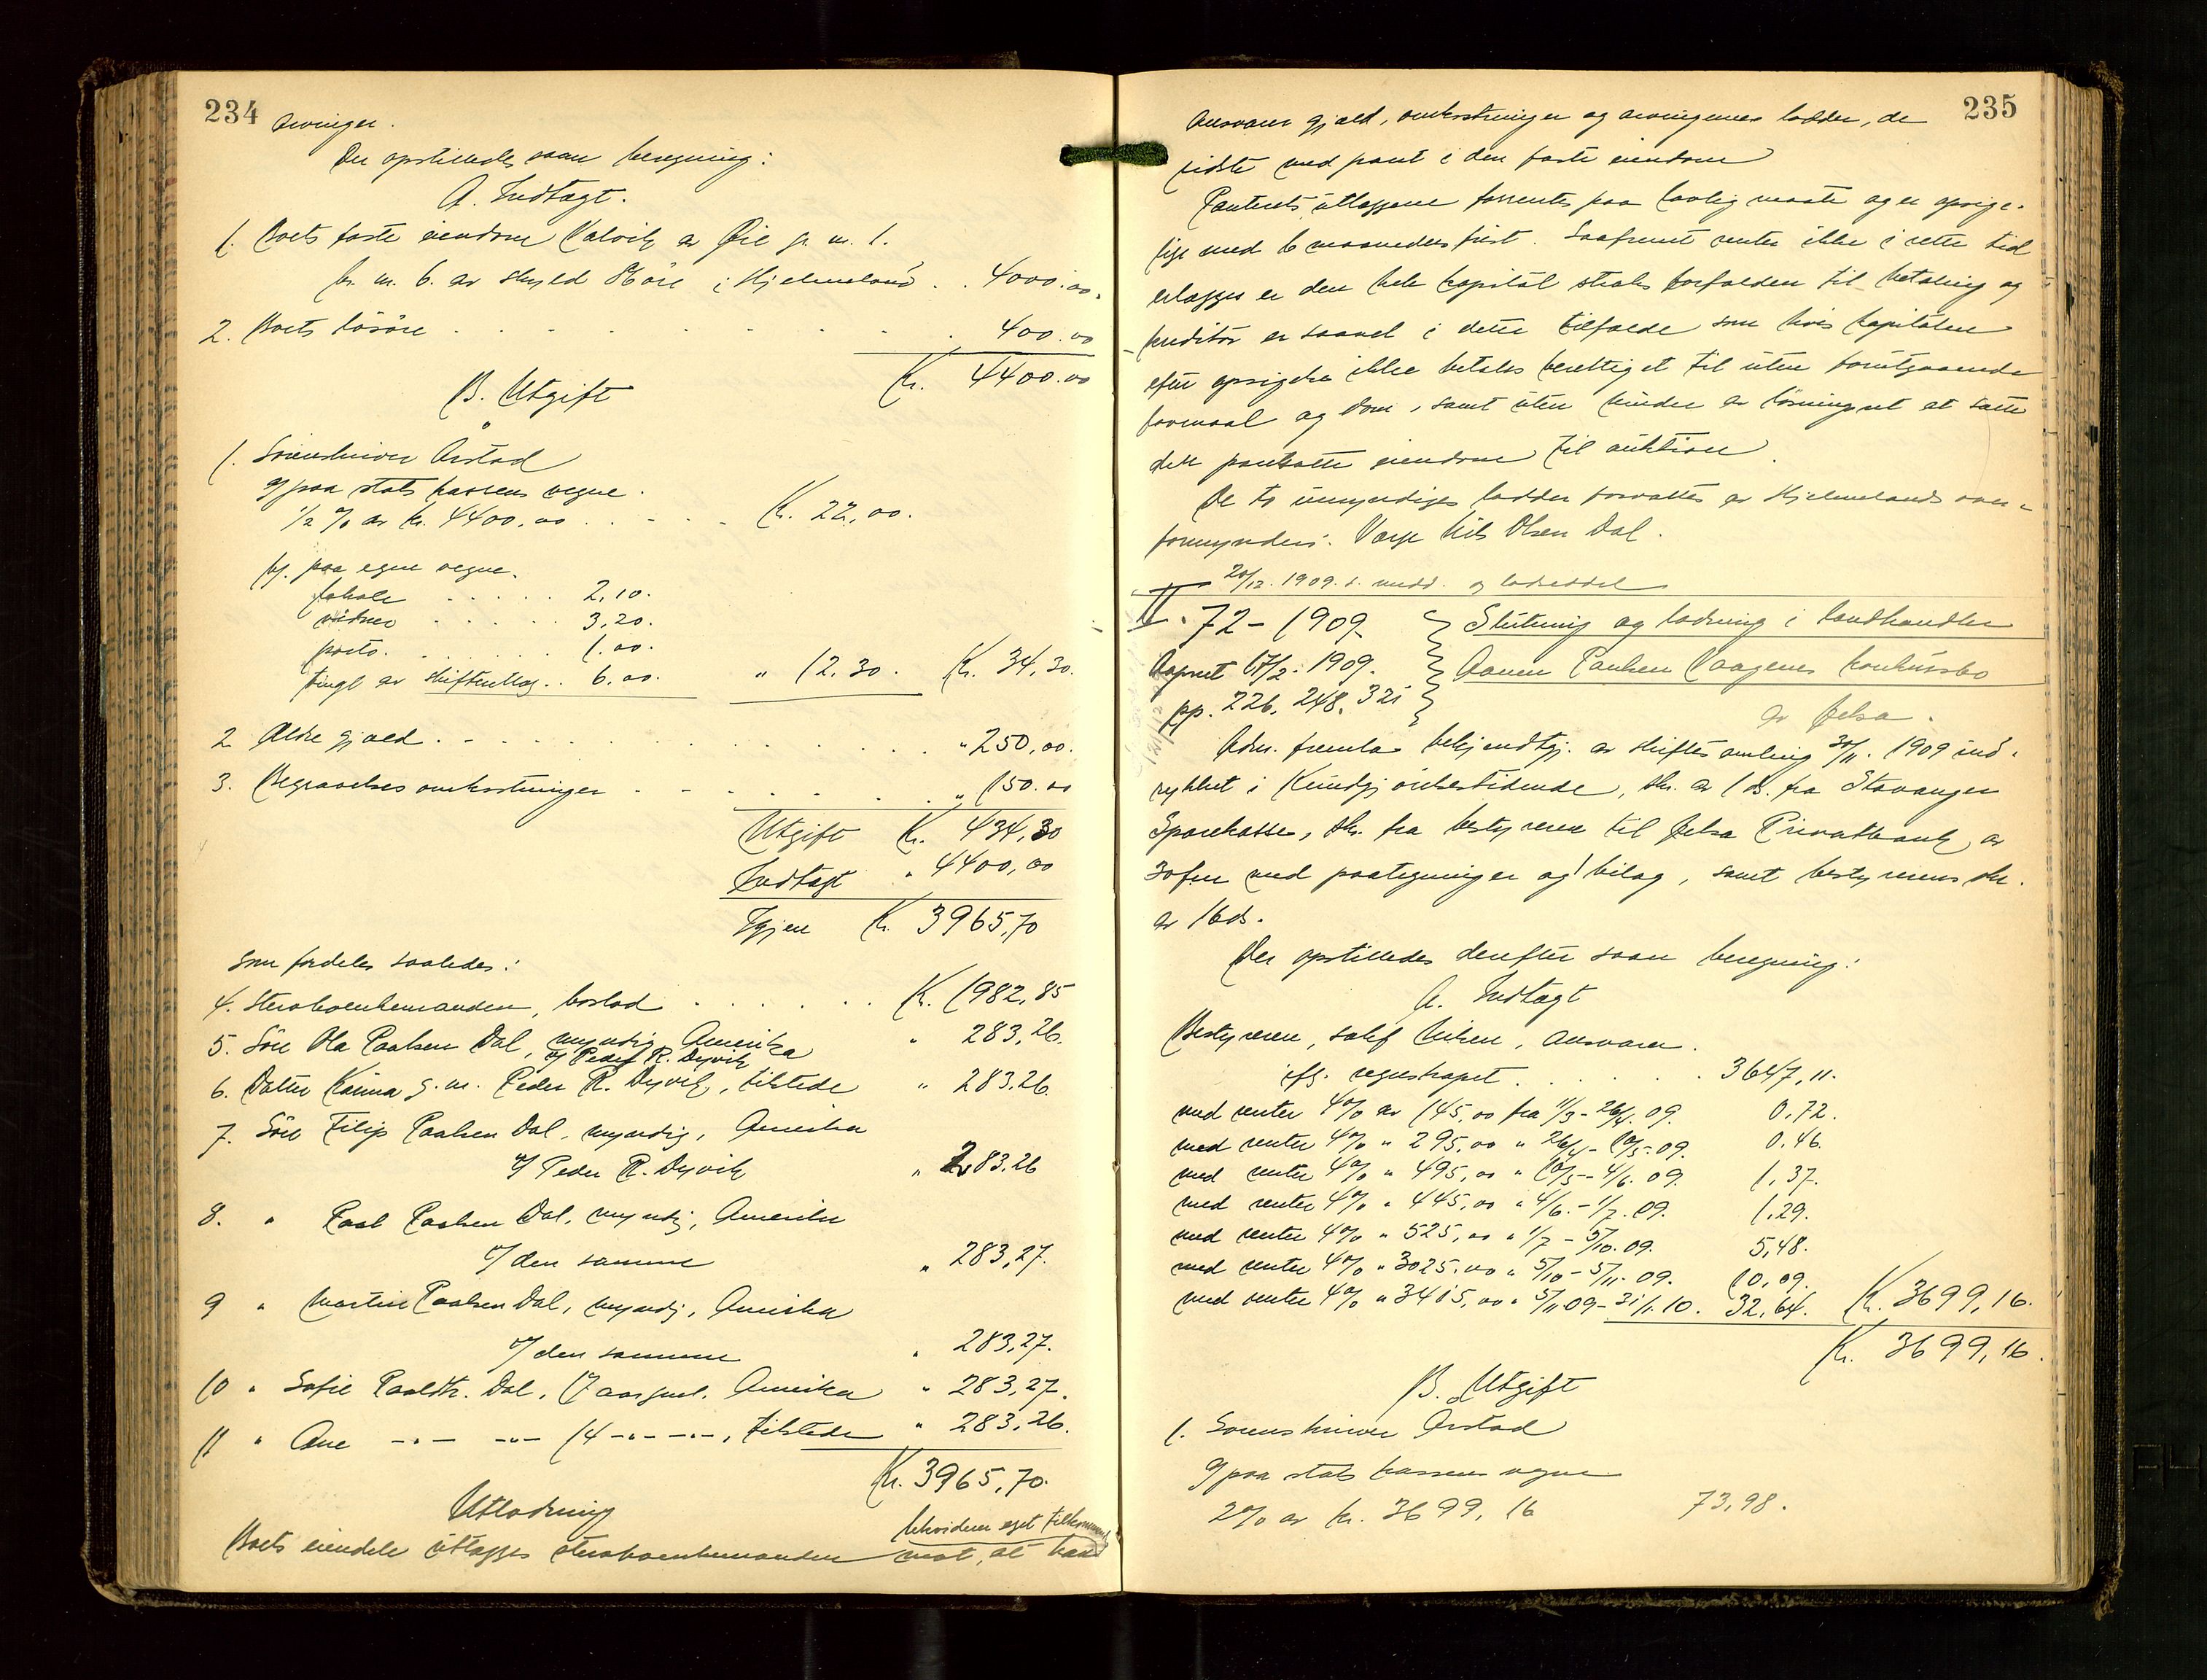 234
arvinger.
Der opstilledes saan beregning:
A. Indtægt.
1. Boets faste eiendom Valvik av Øie g. n. 1.
br. n. 6. av skyld 84 øre i Hjelmeland . . 4000.00.
2. Boets løsøre . . . . . . . . 400.00
Kr. 4400.00
B. Utgift
1. Sorenskriver Årstad
a/ paa statskassens vegne.
1/2 % av kr. 4400.00 . . . . Kr. 22,00.
b/. paa egne vegne.
lokale . . . . . 2,10.
vidner . . . . . 3,20.
porto. . . . . . 1.00.
tingl av skifteutlæg . . 6.00. " 12,30. Kr. 34,30.
2 Ældre gjæld . . . . . . . . . . " 250,00.
3. Begravelsesomkostninger . . . . . . " 150.00
Utgift Kr. 434,30
Indtægt " 4400,00
Igjen Kr. 3965,70
som fordeles saaledes:
4. Stervboenkemanden, boslod . . . . . . Kr. 1982,85
5. Søn Ola Paalsen Dal, myndig, Amerika " 283,26.
v/ Peder R. Dyvik
6. Datter Karina g. m. Peder R. Dyvik, tilstede " 283,26.
7. Søn Filip Paalsen Dal, myndig, Amerika
v/ Peder R. Dyvik " 283,26
8. " Paal Paalsen Dal, myndig, Amerika
v/ den samme " 283,27.
9 " Martin Paalsen Dal, myndig, Amerika
v/ den samme " 283,27.
10 " Sofie Paalsdtr. Dal, 17 aar gml. Amerika " 283,27.
11 " Ane -"- -"- 14 -"- -"-, tilstede " 283,26.
Kr. 3965,70.
Utlodning
bekvidem eget tilkommende
Boets eiendele utlægges stervboenkemanden mot, at han
235
ansvarer gjæld, omkostninger og arvingenes lodder, de
sidste med pant i den faste eiendom
Panterets utlæggene forrentes paa lovlig maate og er opsige-
lige med 6 maaneders frist. Saafremt renter ikke i rette tid
erlægges er den hele kapital straks forfalden til betaling og
kreditor er saavel i dette tilfælde som hvis kapitalen
efter opsigelse ikke betales berettiget til uten forutgaaende
søksmaal og dom, samt uten hinder av løsningsret at sætte
den pantsatte eiendom til auktion.
De to umyndiges lodder forvaltes av Hjelmelands over-
formynderi. Verge Nils Olsen Dal.
20/12. 1909. s. medd. og lodseddel
II. 72 - 1909.
Aapnet 17/2. 1909.
pp. 226, 248, 321
Slutning og lodning i landhandler
Aanen Paulsen Vaagenes konkursbo
av Jelsa.
Adm. fremla bekjendtgj. av skiftesamling 30/11. 1909 ind-
rykket i Kundgjørelsestidende, skr. av 1 ds. fra Stavanger
Sparekasse, skr. fra bestyreren til Jelsa Privatbank av
30 f.m. med paategninger og 1 bilag, samt bestyrerens skr.
av 16 ds.
Der opstilledes derefter saan beregning:
A. Indtægt
Bestyreren, sakf Nilsen, ansvarer.
ifg. regnskapet . . . . . . 3647,11.
med renter 4% av 145,00 fra 11/3 - 26/4. 09. 0,72.
med renter 4% " 295,00 " 26/4 - 10/5. 09. 0,46
med renter 4% " 495,00 " 10/5 - 4/6. 09. 1,37.
med renter 4% " 445,00 " 4/6. - 1/7. 09. 1,29.
med renter 4% " 525,00 " 1/7 - 5/10. 09. 5,48.
med renter 4% " 3025.00 " 5/10 - 5/11. 09. 10,09.
med renter 4% " 3415,00 " 5/11 09 - 31/1. 10. 32,64. Kr. 3699,16.
Kr. 3699,16.
B. Utgift
1. Sorenskriver Årstad
a/ paa statskassens vegne
2% av kr. 3699,16 73,98.